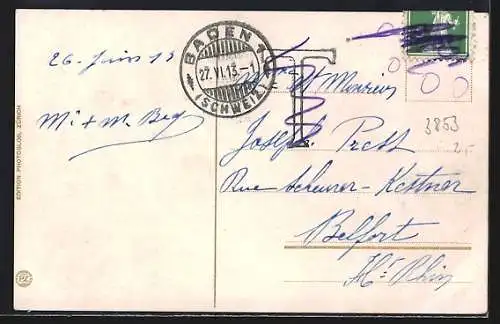 26 Juin 13
BADEN 1
27.VI.13.-1
(SCHWEIZ)
T
Mr et Mme
Joseph Prest
Rue Scheurer-Kestner
Belfort
Ht Rhin
3853
2.-
EDITION PHOTOGLOB, ZÜRICH
PZ